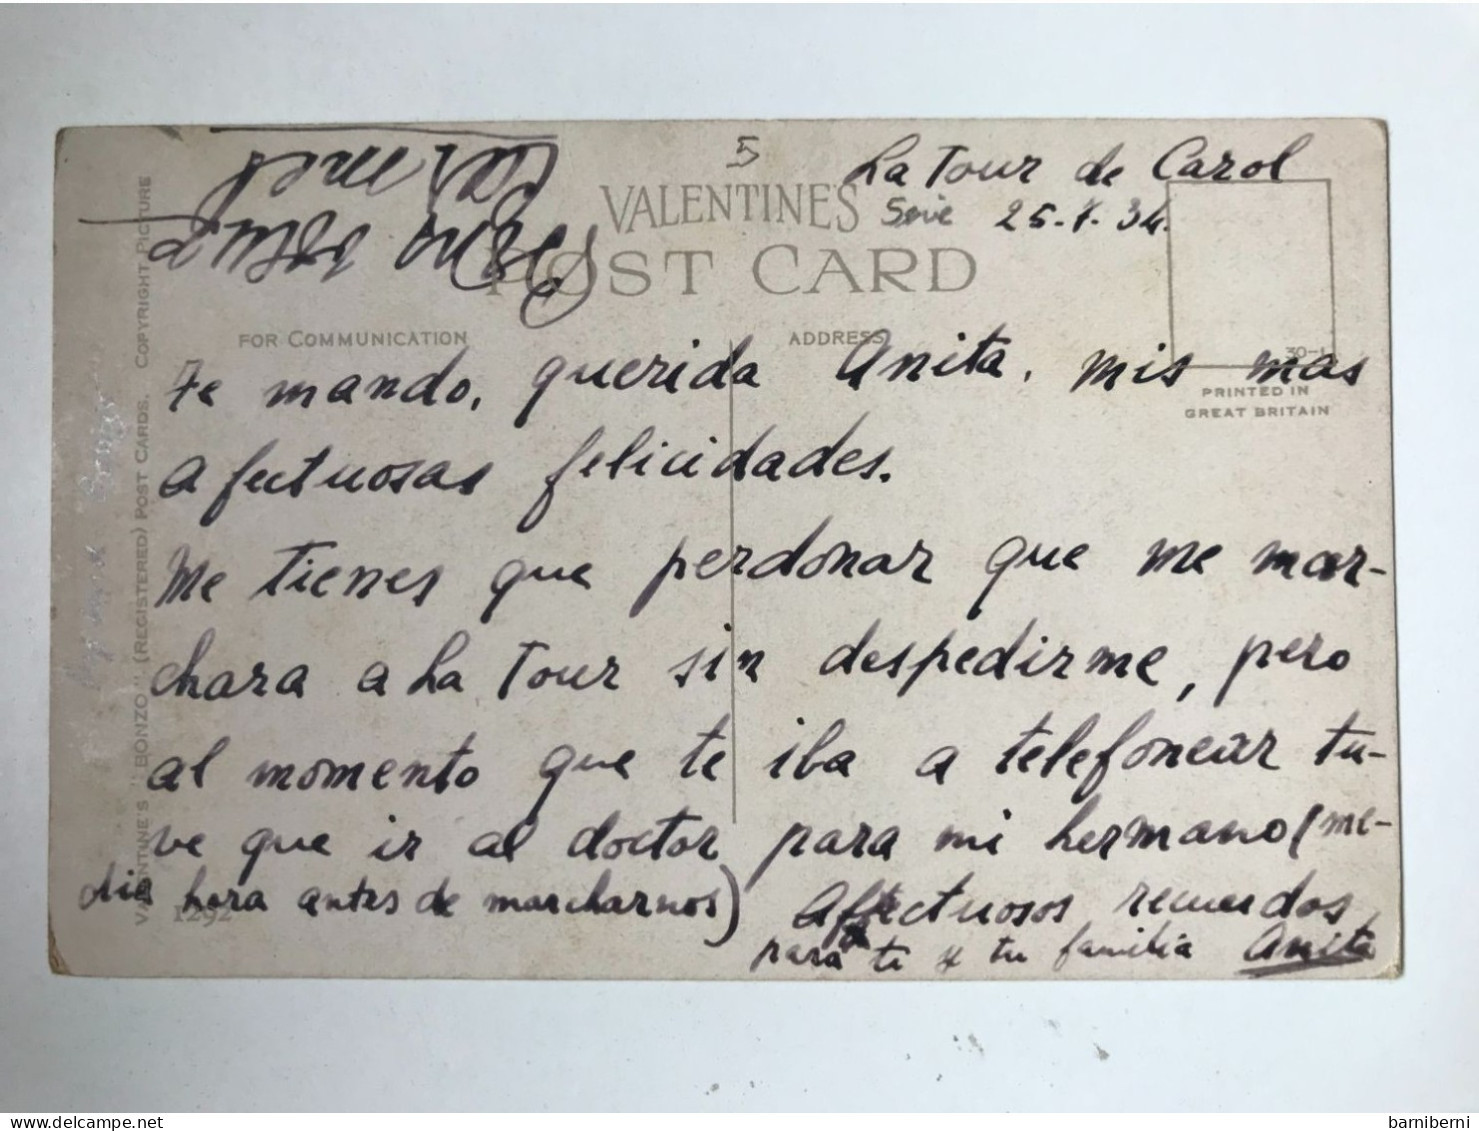 5
La Tour de Carol
25-7-34.
VALENTINES
POST CARD
FOR COMMUNICATION
ADDRESS
30-L
PRINTED IN
GREAT BRITAIN
Te mando, querida Anita, mis mas
afectuosas felicidades.
Me tienes que perdonar que me mar-
chara a La Tour sin despedirme, pero
al momento que te iba a telefonear tu-
ve que ir al doctor para mi hermano (me-
dia hora antes de marcharnos)
Afectuosos recuerdos
para ti y tu familia Anita
VALENTINE'S "BONZO" (REGISTERED) POST CARDS. COPYRIGHT PICTURE
1292
barniberni